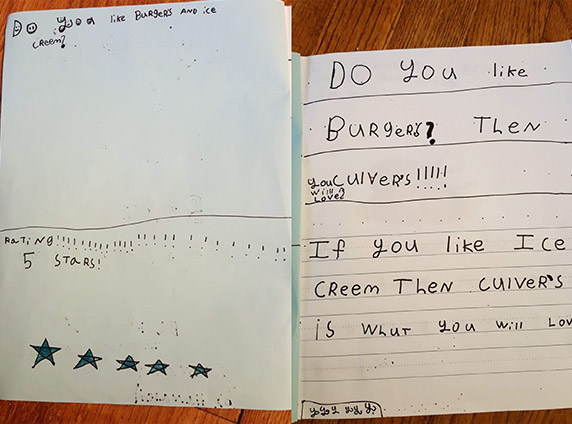 Do you like BURgeRS AND ice
cReem?
RaTiNg!!!!!!!!!!!!!!!!!!!!!!!!!!!!
5 STaRS!
DO YOU like
BURgeRS? THeN
you CUlVeR's!!!!!
will
love
If you like Ice
CReem THeN CUlVeR's
is WHaT you will Lov